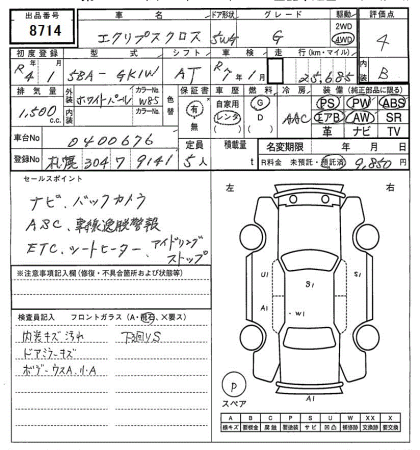 出品番号 車名 ドア形状 グレード 駆動 評価点
8714 エクリプスクロス 5WG G 2WD 4WD 4
初度登録 型式 シフト 車検 走行(km・マイル) 内装
R4年1月 5BA-GK1W AT R7年1月 25,685 B
排気量 外装 ホワイトパール カラーNo. W85 色替 保証書 車歴 燃料 冷房 装備(純正部品に限る)
1,500c.c. 内装 カラーNo. 有・無 自家用 レンタ G D AAC PS PW ABS
エアB AW SR
革 ナビ TV
車台No 0400676 定員 積載量 名変期限 年 月 日
登録No 札幌 304 7 9141 5人 t R料金 未預託・預託済 9,850円
セールスポイント
ナビ、バックカメラ
ABC、車線逸脱警報
ETC、シートヒーター、アイドリングストップ
※注意事項記入欄(修復・不具合箇所および状態等)
検査員記入 フロントガラス(A・飛石、×要ス)
内装キズ汚れ 下回りS
ドアミラーキズ
ボデーウスA.小A
左 右
U1 S1
B1
A1 W1
P
スペア
A1
A B C P S U W X XX
線キズ 要板金 腐蝕 要塗装 サビ 凹凸 補修跡 要交換 交換済